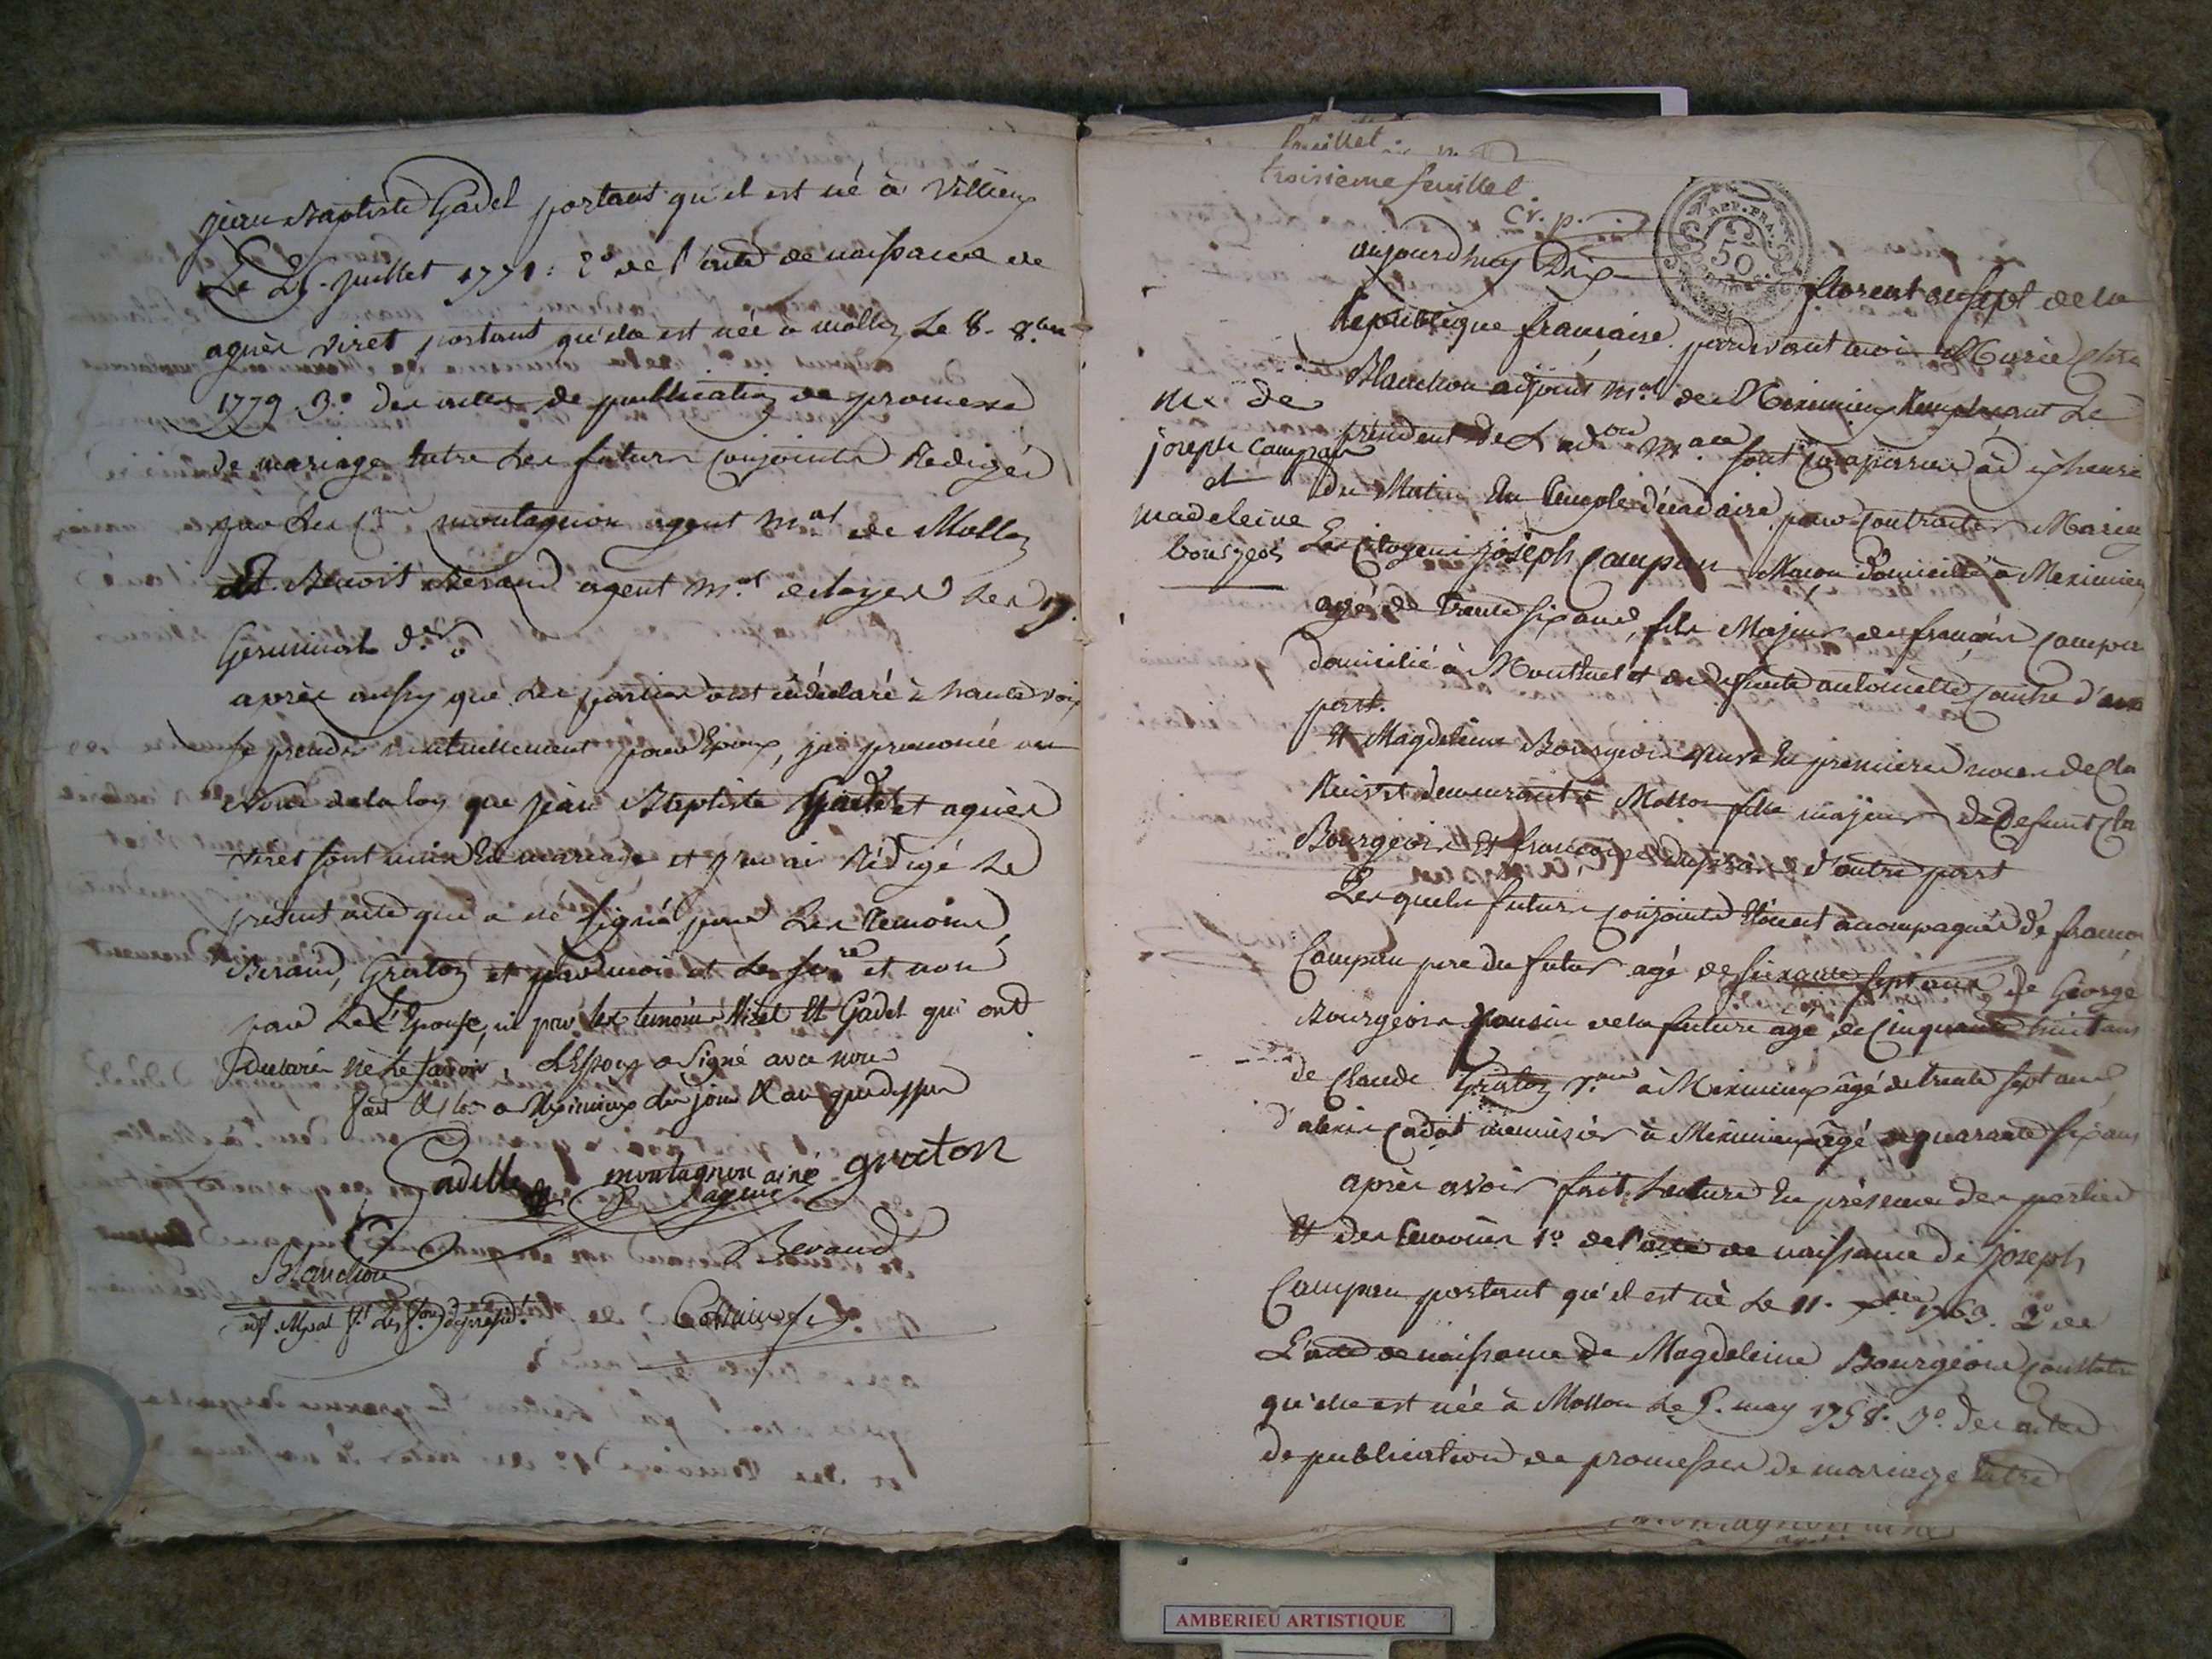 jean Baptiste Gadel portant qu'il est né à Villieux
Le 25. juillet 1771: 2° de l'acte de naissance de
agnès viret portant qu'elle est née a mollon Le 8. 8bre
1779. 3° des actes de publication de promesse
de mariage entre les futurs conjoints Redigés
par les cens montagnon agent mal de Mollon
Et Benoit Beraud agent mal de loyes les
Germinal der
après aussy que les parties ont eu déclaré à haute voix
se prendre mutuellement pour Epoux, j'ai prononcé au
Nom de la loy que jean Baptiste Gadel et agnès
viret sont unis En mariage et j'en ai Rédigé Le
présent acte qui a été signé par Les temoins
Beraud, Graton et par moi et le sre et non
par L'Epouse, ni par les temoins Viret Et Gadel qui ont
declarés ne le savoir, L'Epoux a signé avec nous
fait Et clos a Meximieux les jour Et an que dessus
Gadille
montagnon ainé
agent
graton
Beraud
Blanchon
adj. Mpal
troisieme feuillet
REP. FRA.
50
aujourdhuy Dix floreal an sept de la
Republique francaise. pardevant moi Marie
Blanchon adjoint mal de Meximieux Remplaçant Le
président de L'adon male sont comparus à dix heures
du Matin Au temple décadaire pour contracter Mariage
M. de
joseph campan
et
madeleine
bourgeois
Les Citoyens joseph Campan Maçon Domicilié à Meximieux
agé de Trente six ans, fils Majeur de françois Campan
domicilié à Montluel et de defunte antoinette d'une
part.
Et Magdeleine Bourgeois veuve En premieres noces de Cla
demeurant à Mollon fille majeure de Defunt Cla
Bourgeois Et françoise d'autre part
Lesquels futurs conjoints Etoient accompagnés de franço
Campan pere du futur agé de soixante sept ans, de George
Bourgeois Cousin de la future agé de Cinquante huit ans
de Claude Graton à Meximieux agé de trente sept ans
d'alexis Cadot menuisier à Meximieux agé de quarante six ans
après avoir fait Lecture En présence des parties
Et des temoins 1° de l'acte de naissance de joseph
Campan portant qu'il est né Le 11. 1763. 2° de
L'acte de naissance de Magdeleine Bourgeois
qu'elle est née à Mollon Le 9. may 1758. 3° des actes
de publication de promesses de mariage Entre
AMBERIEU ARTISTIQUE